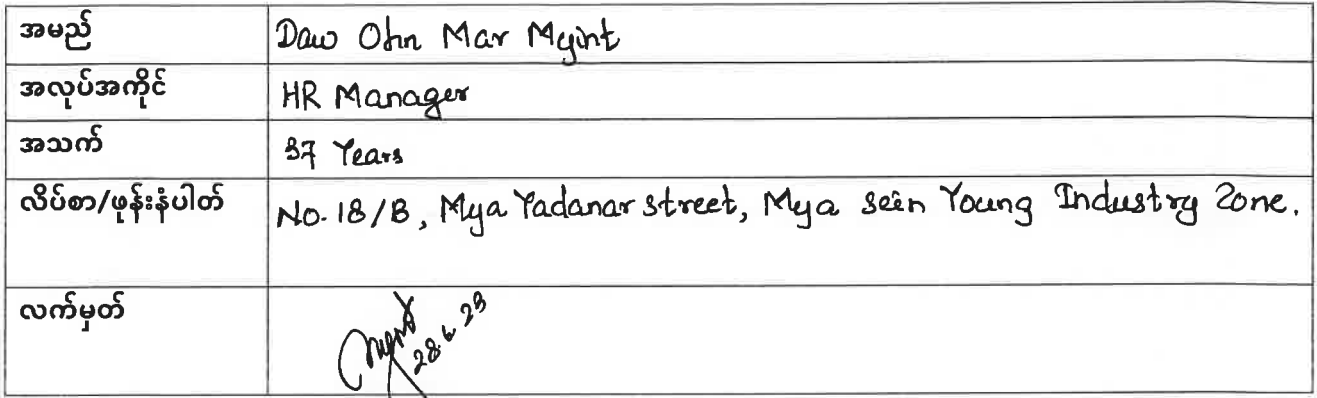 အမည် Daw Ohn Mar Myint
အလုပ်အကိုင် HR Manager
အသက် 37 Years
လိပ်စာ/ဖုန်းနံပါတ် No. 18/B, Mya Yadanar street, Mya sein Young Industry Zone.
လက်မှတ်
28.6.23